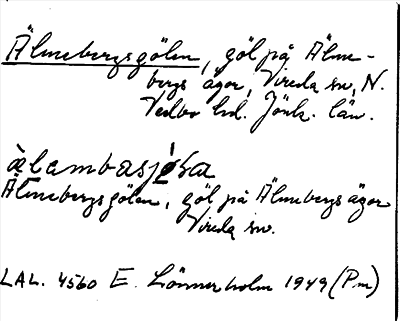 Älmebergsgölen, göl på Älme-
bergs ägor, Vireda sn, N.
Vedbo hd. Jönk. län.
Älmebergsgölen, göl på Älmebergs ägor
Vireda sn.
LAL. 4560 E. Lönnerholm 1949 (Pm)